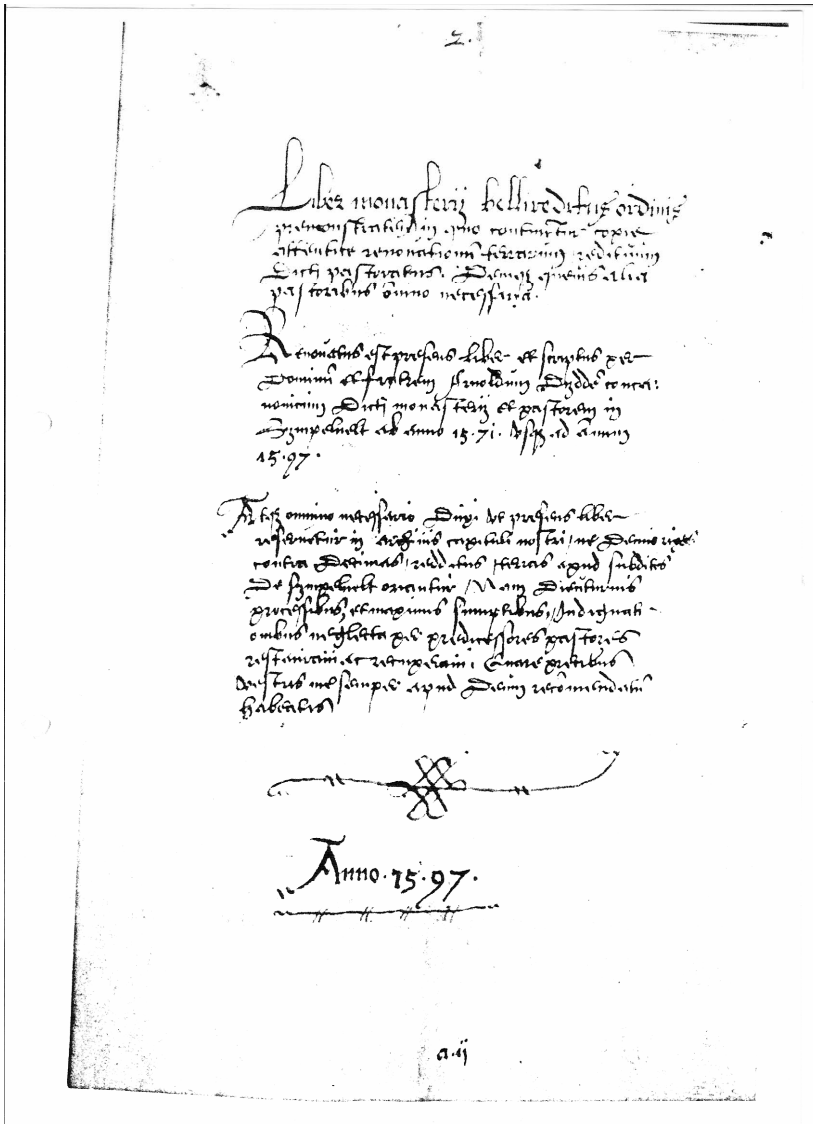 2.
Liber monasterij bellireditus ordinis
premonstratensis in quo continentur copie
attentice renovationum terrarum reddituum
Dicti pastoratus. Deniqz quevis alia
pastoribus omnino necessaria.
Renovatus est presens liber et scriptus per
Dominum et fratrem Arnoldum conca:
nonicum Dicti monasterij et pastorem in
Sympelvelt ab anno 15.71. usqz ad annum
15.97.
omnino necessario Duxi ut presens liber
reservetur in archivis capituli nostri, ne Denuo
contra Decimas, redditus, terras apud subditos
De Sympelvelt oriantur, Nam Diuturnis
processibus, et maximis sumptibus, Indignati-
onibus neglecta per predicessores pastores
restauravi ac recuperavi, Quare precibus
vestris me semper apud Deum recommendatum
habeatis
Anno.15.97.
a.ij